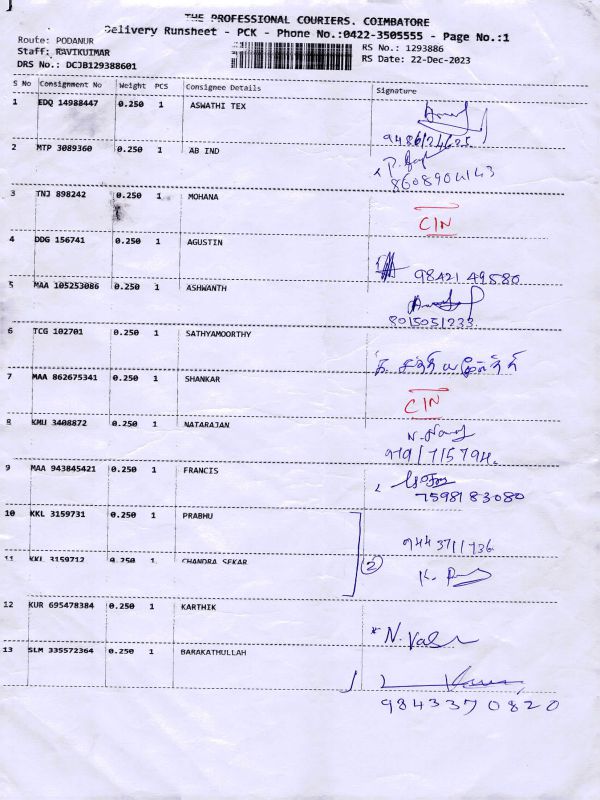 THE PROFESSIONAL COURIERS. COIMBATORE
Delivery Runsheet - PCK - Phone No.:0422-3505555 - Page No.:1
Route: PODANUR
Staff: RAVIKUIMAR
DRS No.: DCJB129388601
RS No.: 1293886
RS Date: 22-Dec-2023
S No Consignment No Weight PCS Consignee Details Signature
1 EDQ 14988447 0.250 1 ASWATHI TEX
2 MTP 3089360 0.250 1 AB IND
8608904143
3 TNJ 898242 0.250 1 MOHANA
CIN
4 DDG 156741 0.250 1 AGUSTIN
98421 49580
5 MAA 105253086 0.250 1 ASHWANTH
8015051233
6 TCG 102701 0.250 1 SATHYAMOORTHY
7 MAA 862675341 0.250 1 SHANKAR
CIN
8 KMU 3408872 0.250 1 NATARAJAN
979/7/5794.
9 MAA 943845421 0.250 1 FRANCIS
7598183080
10 KKL 3159731 0.250 1 PRABHU
944 3711736
11 KKL 3159712 0.250 1 CHANDRA SEKAR
2
12 KUR 695478384 0.250 1 KARTHIK
13 SLM 335572364 0.250 1 BARAKATHULLAH
9843370820